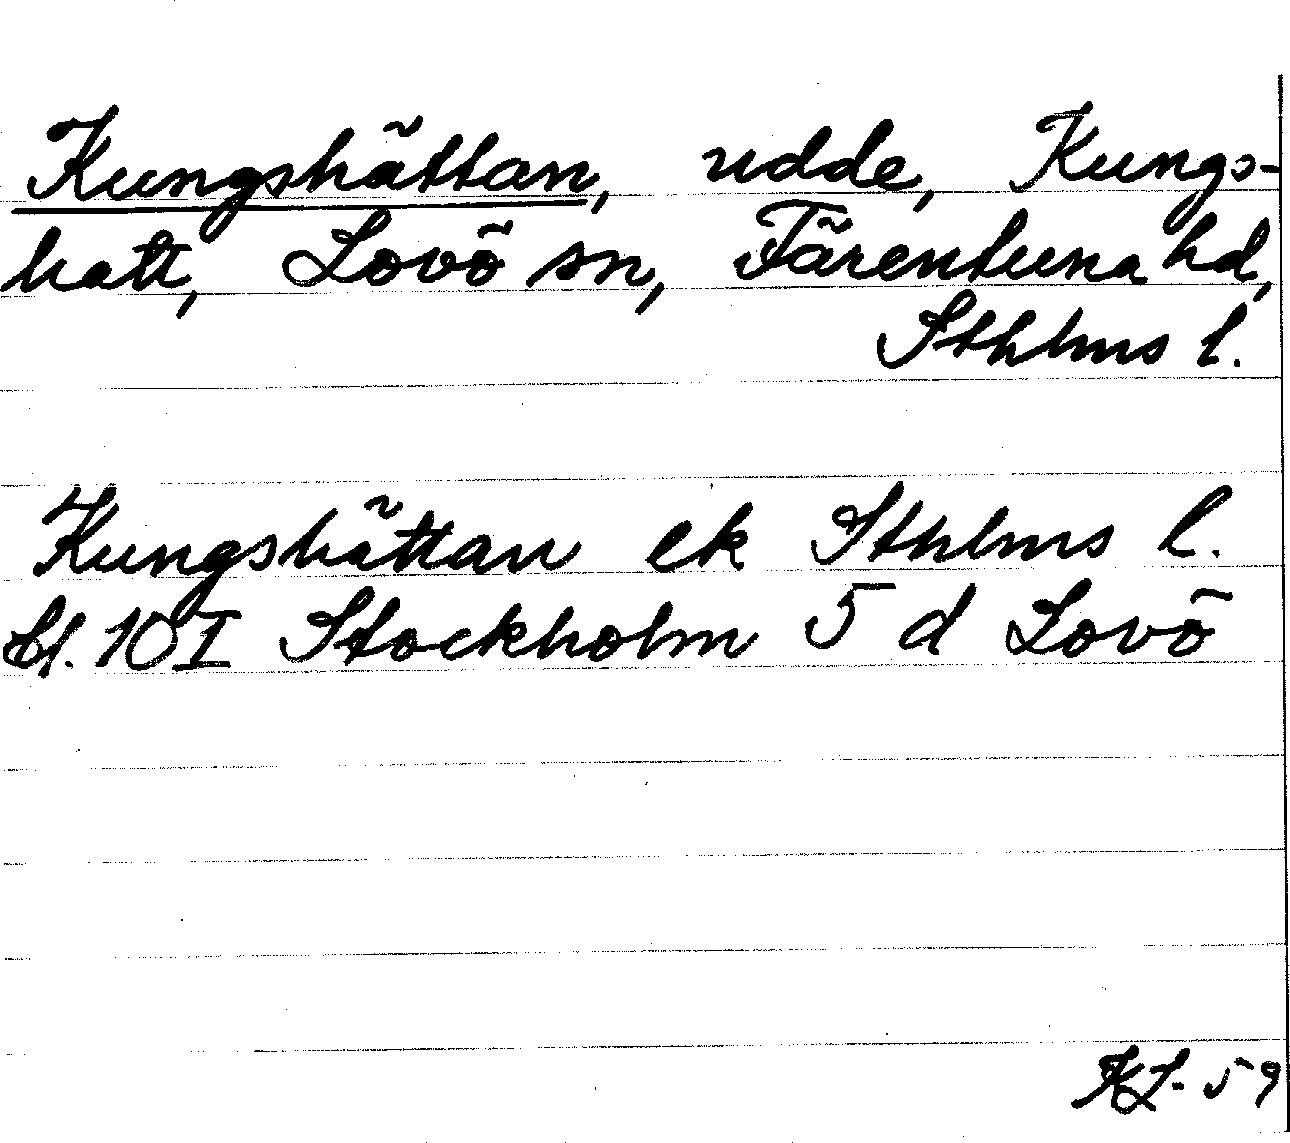 Kungshättan, udde, Kungs-
hatt, Lovö sn, Färentuna hd,
Sthlms l.
Kungshättan ek Sthlms l.
bl. 10 I Stockholm 5 d Lovö
KL-59